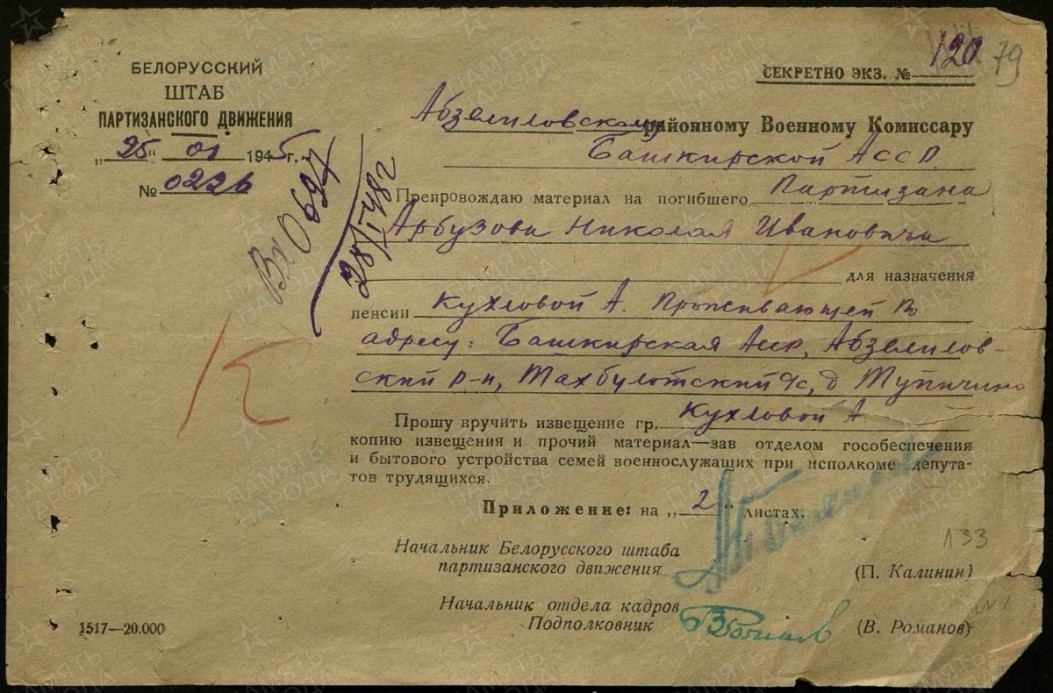 120
79
СЕКРЕТНО ЭКЗ. №
БЕЛОРУССКИЙ
ШТАБ
ПАРТИЗАНСКОГО ДВИЖЕНИЯ
„25" 01 1945 г.
№ 0226
Вх 0697
28/IV 48 г
Абзелиловскому районному Военному Комиссару
Башкирской АССР.
Препровождаю материал на погибшего Партизана
Арбузова Николая Ивановича
для назначения
пенсии Кухловой А. Проживающей
адресу: Башкирская Асср, Абзелилов-
ский р-н, Тахбулотский с/с, д
Прошу вручить извещение гр. Кухловой А
копию извещения и прочий материал—зав отделом гособеспечения
и бытового устройства семей военнослужащих при исполкоме депута-
тов трудящихся.
Приложение: на „2" листах.
133
Начальник Белорусского штаба
партизанского движения
(П. Калинин)
Начальник отдела кадров
Подполковник
(В. Романов)
1517—20.000
К
ПАМЯТЬ НАРОДА